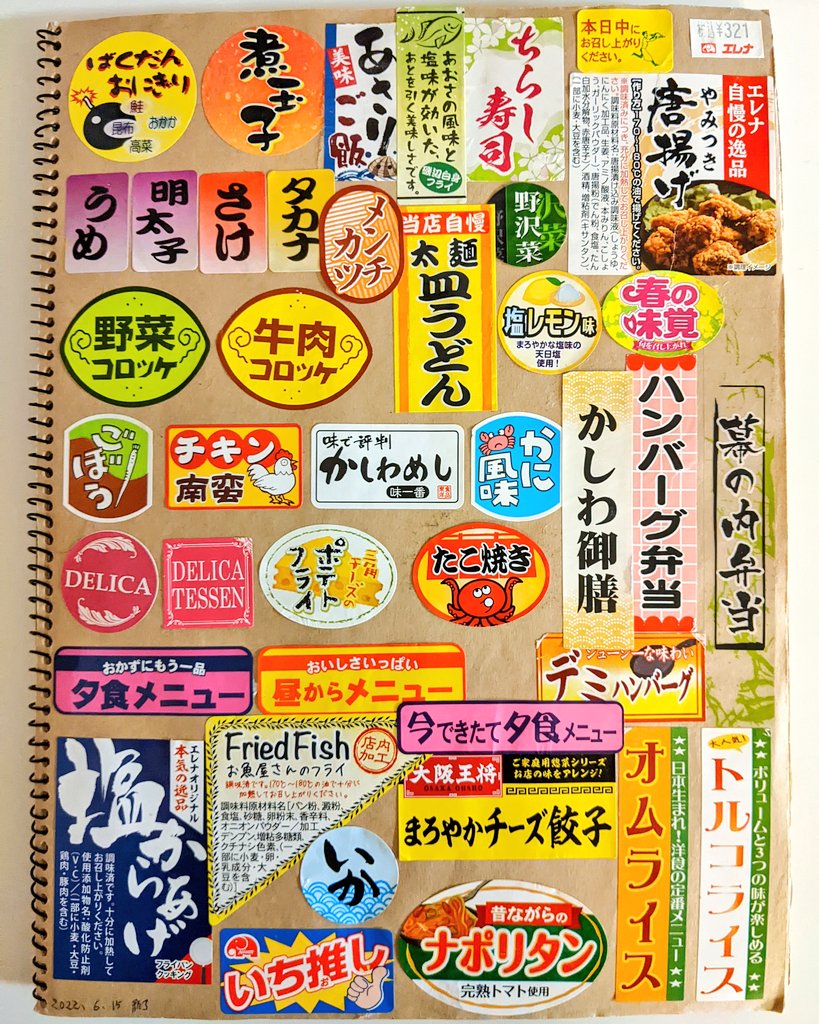 ばくだん
おにぎり
鮭
昆布
おかか
高菜
煮玉子
美味
あさり
ご飯
あおさの風味と
塩味が効いた、
あとを引く美味しさです。
磯辺白身
フライ
ちらし
寿司
本日中に
お召し上がり
ください。
税込¥321
エレナ
エレナ
自慢の逸品
やみつき
唐揚げ
【作り方】170~180℃の油で揚げてください。
※調理イメージ
うめ
明太子
さけ
タカナ
メンチ
カツ
当店自慢
太麺
皿うどん
野沢菜
塩レモン味
まろやかな塩味の
天日塩
使用!
春の
味覚
旬を召し上がれ
野菜
コロッケ
牛肉
コロッケ
ごぼう
チキン
南蛮
味で評判
かしわめし
味一番
かに
風味
かしわ御膳
ハンバーグ弁当
幕の内弁当
DELICA
DELICA
TESSEN
三角
チーズの
ポテト
フライ
たこ焼き
おかずにもう一品
夕食メニュー
おいしさいっぱい
昼からメニュー
ジューシーな味わい
デミハンバーグ
今できたて夕食メニュー
エレナオリジナル
本気の逸品
塩からあげ
調味済です。十分に加熱して
お召し上がりください。
使用添加物名:酸化防止剤
(V.C)/(一部に小麦・大豆・
鶏肉・豚肉を含む)
フライパン
クッキング
Fried Fish
店内
加工
お魚屋さんのフライ
調味済です。170℃~180℃の油で十分に
加熱してお召し上がりください。
調味料原材料名[パン粉、澱粉、
食塩、砂糖、卵粉末、香辛料、
オニオンパウダー/加工
デンプン、増粘多糖類、
クチナシ色素、(一
部に小麦・卵・
乳成分・大
豆を含
む)]
いか
大阪王将
OSAKA OHSHO
ご家庭用惣菜シリーズ
お店の味をアレンジ!
まろやかチーズ餃子
昔ながらの
ナポリタン
完熟トマト使用
いち推し
★★日本生まれ!洋食の定番メニュー★★
オムライス
大人気!
トルコライス
★★ボリュームと3つの味が楽しめる★★
2022.6.15